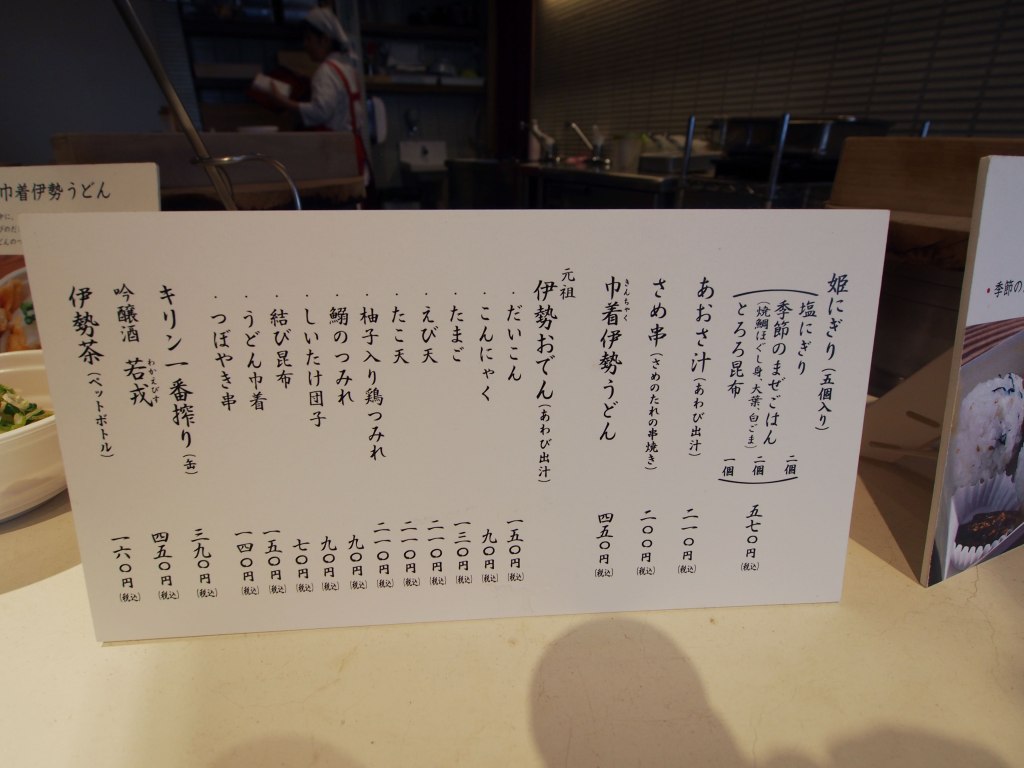 姫にぎり（五個入り）
塩にぎり 二個
季節のまぜごはん 二個
（焼鯛ほぐし身、大葉、白ごま）
とろろ昆布 一個
五七〇円（税込）
あおさ汁（あわび出汁） 二一〇円（税込）
さめ串（さめのたれの串焼き） 二〇〇円（税込）
巾着伊勢うどん 四五〇円（税込）
きんちゃく
元祖
伊勢おでん（あわび出汁）
・だいこん 一五〇円（税込）
・こんにゃく 九〇円（税込）
・たまご 一三〇円（税込）
・えび天 二一〇円（税込）
・たこ天 二一〇円（税込）
・柚子入り鶏つみれ 二一〇円（税込）
・鰯のつみれ 九〇円（税込）
・しいたけ団子 九〇円（税込）
・結び昆布 七〇円（税込）
・うどん巾着 一五〇円（税込）
・つぼやき串 一四〇円（税込）
キリン一番搾り（缶） 三九〇円（税込）
吟醸酒 若戎 四五〇円（税込）
わかえびす
伊勢茶（ペットボトル） 一六〇円（税込）
巾着伊勢うどん
・季節の